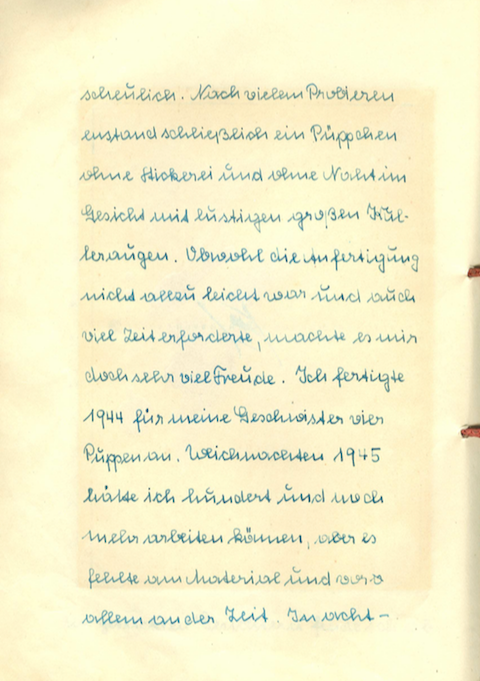 scheulich. Nach vielem Probieren
enstand schließlich ein Püppchen
ohne Stickerei und ohne Naht im
Gesicht mit lustigen großen Kul-
leraugen. Obwohl die Anfertigung
nicht allzu leicht war und auch
viel Zeit erforderte, machte es mir
doch sehr viel Freude. Ich fertigte
1944 für meine Geschwister vier
Puppen an. Weichnachten 1945
hätte ich hundert und noch
mehr arbeiten können, aber es
fehlte am Material und vor
allem an der Zeit. In acht-